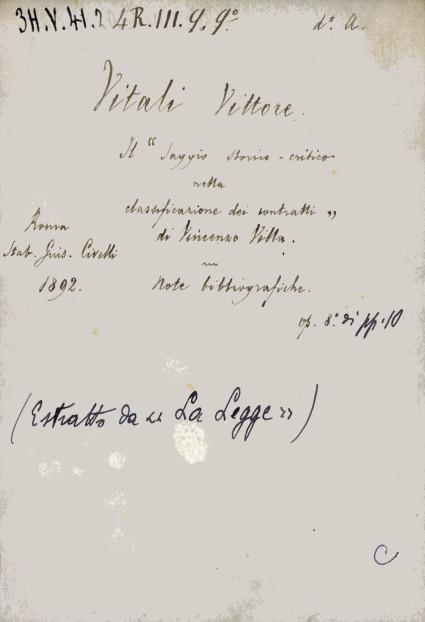 3H.V.41.2 4R.III.9.9º d° A.
Vitali Vittore.
Il "Saggio storico-critico
nella
classificazione dei contratti"
di Vincenzo Villa.
Roma
Stab. Gius. Civelli
1892.
Note bibliografiche.
op. 8.° di pp. 10
(Estratto da « La Legge »)
C